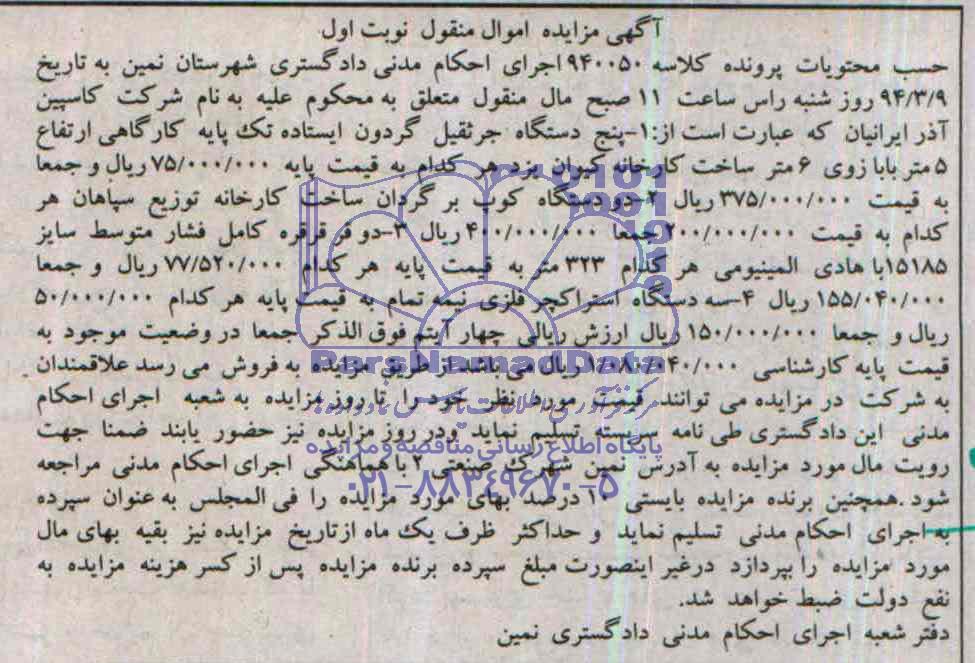 آگهی مزایده اموال منقول نوبت اول
حسب محتویات پرونده کلاسه ۹۴۰۰۵۰ اجرای احکام مدنی دادگستری شهرستان نمین به تاریخ
۹۴/۳/۹ روز شنبه راس ساعت ۱۱ صبح مال منقول متعلق به محکوم علیه به نام شرکت کاسپین
آذر ایرانیان که عبارت است از:۱-پنج دستگاه جرثقیل گردون ایستاده تک پایه کارگاهی ارتفاع
۵ متر بابازوی ۶ متر ساخت کارخانه کیوان یزد هر کدام به قیمت پایه ۷۵/۰۰۰/۰۰۰ ریال و جمعا
به قیمت ۳۷۵/۰۰۰/۰۰۰ ریال ۲-دو دستگاه کوپ بر گردان ساخت کارخانه توزیع سپاهان هر
کدام به قیمت ۲۰۰/۰۰۰/۰۰۰ جمعا ۴۰۰/۰۰۰/۰۰۰ ریال ۳-دو فر قرقره کامل فشار متوسط سایز
۱۵۱۸۵با هادی المینیومی هر کدام ۳۲۳ متر به قیمت پایه هر کدام ۷۷/۵۲۰/۰۰۰ ریال و جمعا
۱۵۵/۰۴۰/۰۰۰ ریال ۴-سه دستگاه استراکچر فلزی نیمه تمام به قیمت پایه هر کدام ۵۰/۰۰۰/۰۰۰
ریال و جمعا ۱۵۰/۰۰۰/۰۰۰ ریال ارزش ریالی چهار آیتم فوق الذکر جمعا در وضعیت موجود به
قیمت پایه کارشناسی ۱/۰۸۰/۰۴۰/۰۰۰ ریال می باشد از طریق مزایده به فروش می رسد علاقمندان
به شرکت در مزایده می توانند قیمت مورد نظر خود را تا روز مزایده به شعبه اجرای احکام
مدنی این دادگستری طی نامه سربسته تسلیم نماید ودر روز مزایده نیز حضور یابند ضمنا جهت
رویت مال مورد مزایده به آدرس نمین شهرک صنعتی ۲ با هماهنگی اجرای احکام مدنی مراجعه
شود .همچنین برنده مزایده بایستی ۱۰ درصد بهای مورد مزایده را فی المجلس به عنوان سپرده
به اجرای احکام مدنی تسلیم نماید و حداکثر ظرف یک ماه از تاریخ مزایده نیز بقیه بهای مال
مورد مزایده را بپردازد درغیر اینصورت مبلغ سپرده برنده مزایده پس از کسر هزینه مزایده به
نفع دولت ضبط خواهد شد.
دفتر شعبه اجرای احکام مدنی دادگستری نمین
ParsNamadData
پایگاه اطلاع رسانی مناقصه و مزایده
۰۲۱-۸۸۳۴۹۶۷۰-۵